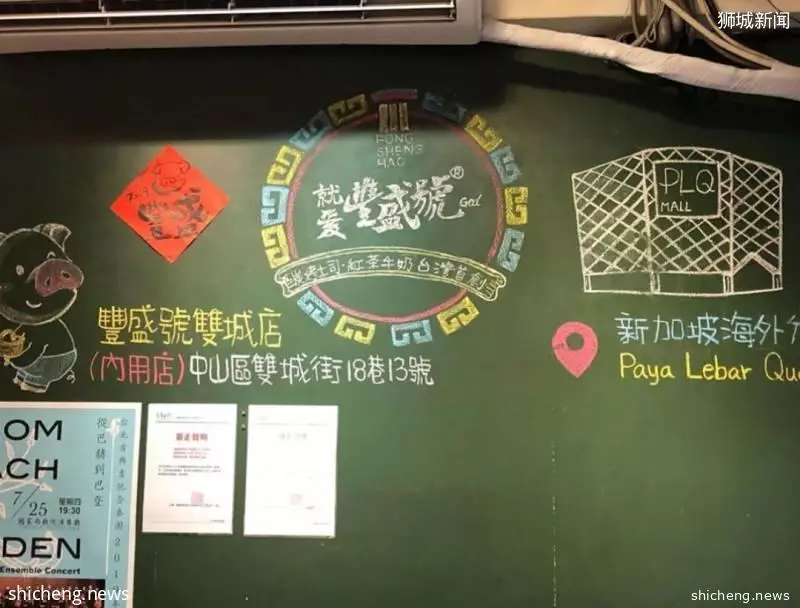 狮城新闻
FONG
SHENG
HAO
就爱豐盛號®
碳烤土司·紅茶牛奶台灣首創
2019
豐盛
PLQ
MALL
豐盛號雙城店
(內用店)中山區雙城街18巷13號
新加坡海外分
Paya Lebar Qua
OM
ACH
7/25 星期四
19:30
DEN
Ensemble Concert
從巴赫到巴登
嚴正聲明
shicheng.news
shicheng.news